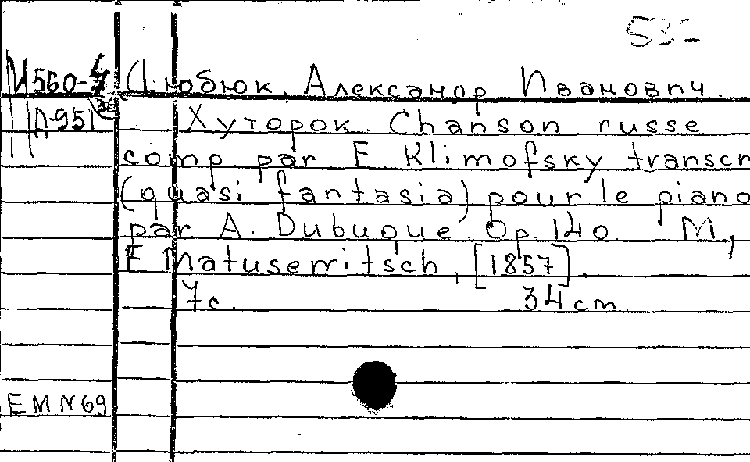 М560-4 Дюбюк, Александр Иванович.
Д-951 Хуторок. Chanson russe
comp par E Klimofsky transcr
(quasi fantasia) pour le piano
par A. Dubuque Op 140 М,
E Matusemitsch, [1857].
7с. 34 cm